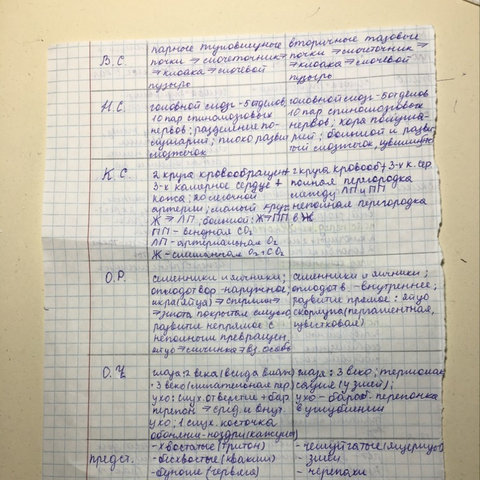 В.С.
парные туловищные
почки → мочеточник →
→ клоака → мочевой
пузырь
вторичные тазовые
почки → мочеточник →
→ клоака → мочевой
пузырь
Н.С.
головной мозг - 5 отделов
10 пар спинномозговых
нервов; разделение по-
лушарий; плохо развит
мозжечок
головной мозг - 5 отделов
10 пар спинномозговых
нервов; кора полуша-
рий; большой и разви
тый мозжечок
К.С.
2 круга кровообращен
3-х камерное сердце +
кожа;
артерии; малый круг
Ж → ЛП, большой: Ж → ПП
ПП - венозная CO₂
ЛП - артериальная O₂
Ж - смешанная O₂ + CO₂
2 круга кровооб; 3-х к. сер.
+ полная перегородка
между ЛП и ПП
неполная перегородка
в Ж
О.Р.
семенники и яичники;
оплодотвор - наружное;
икра (яйца) → сперм
→ зигота покрытая
развитие непрямое с
неполным превращен.
яйцо → личинка → вз. особь
семенники и яичники;
оплодотв - внутреннее;
развитие прямое: яйцо
скорлупа (пергаментная,
известковая)
О.Ч.
глаза: 2 века
+ 3 веко (мигательная пер)
ухо: слух отверстие + бар
перепон → сред и внут.
ухо; 1 слух косточка
обоняния - ноздри
глаза: 3 веко; термолок
сация (у змей);
ухо - бараб. перепонка
в углублении
предст.
- хвостатые (тритон)
- бесхвостые (квакши)
- безногие (червяга)
- чешуйчатые (ящерицы)
- змеи
- черепахи